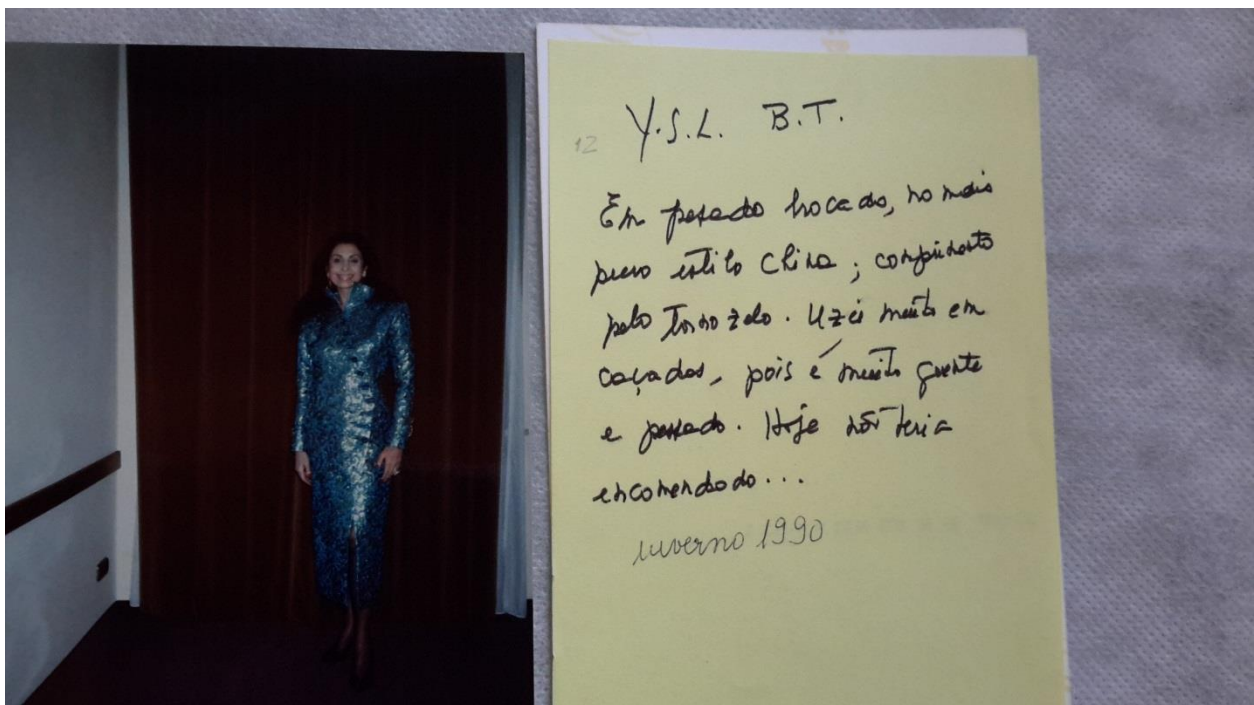 Y.S.L. B.T.
12
Em pesado brocado, no mais
puro estilo China; comprimento
pelo tornozelo. Uzei muito em
caçadas, pois é muito quente
e pesado. Hoje não teria
encomendado...
inverno 1990